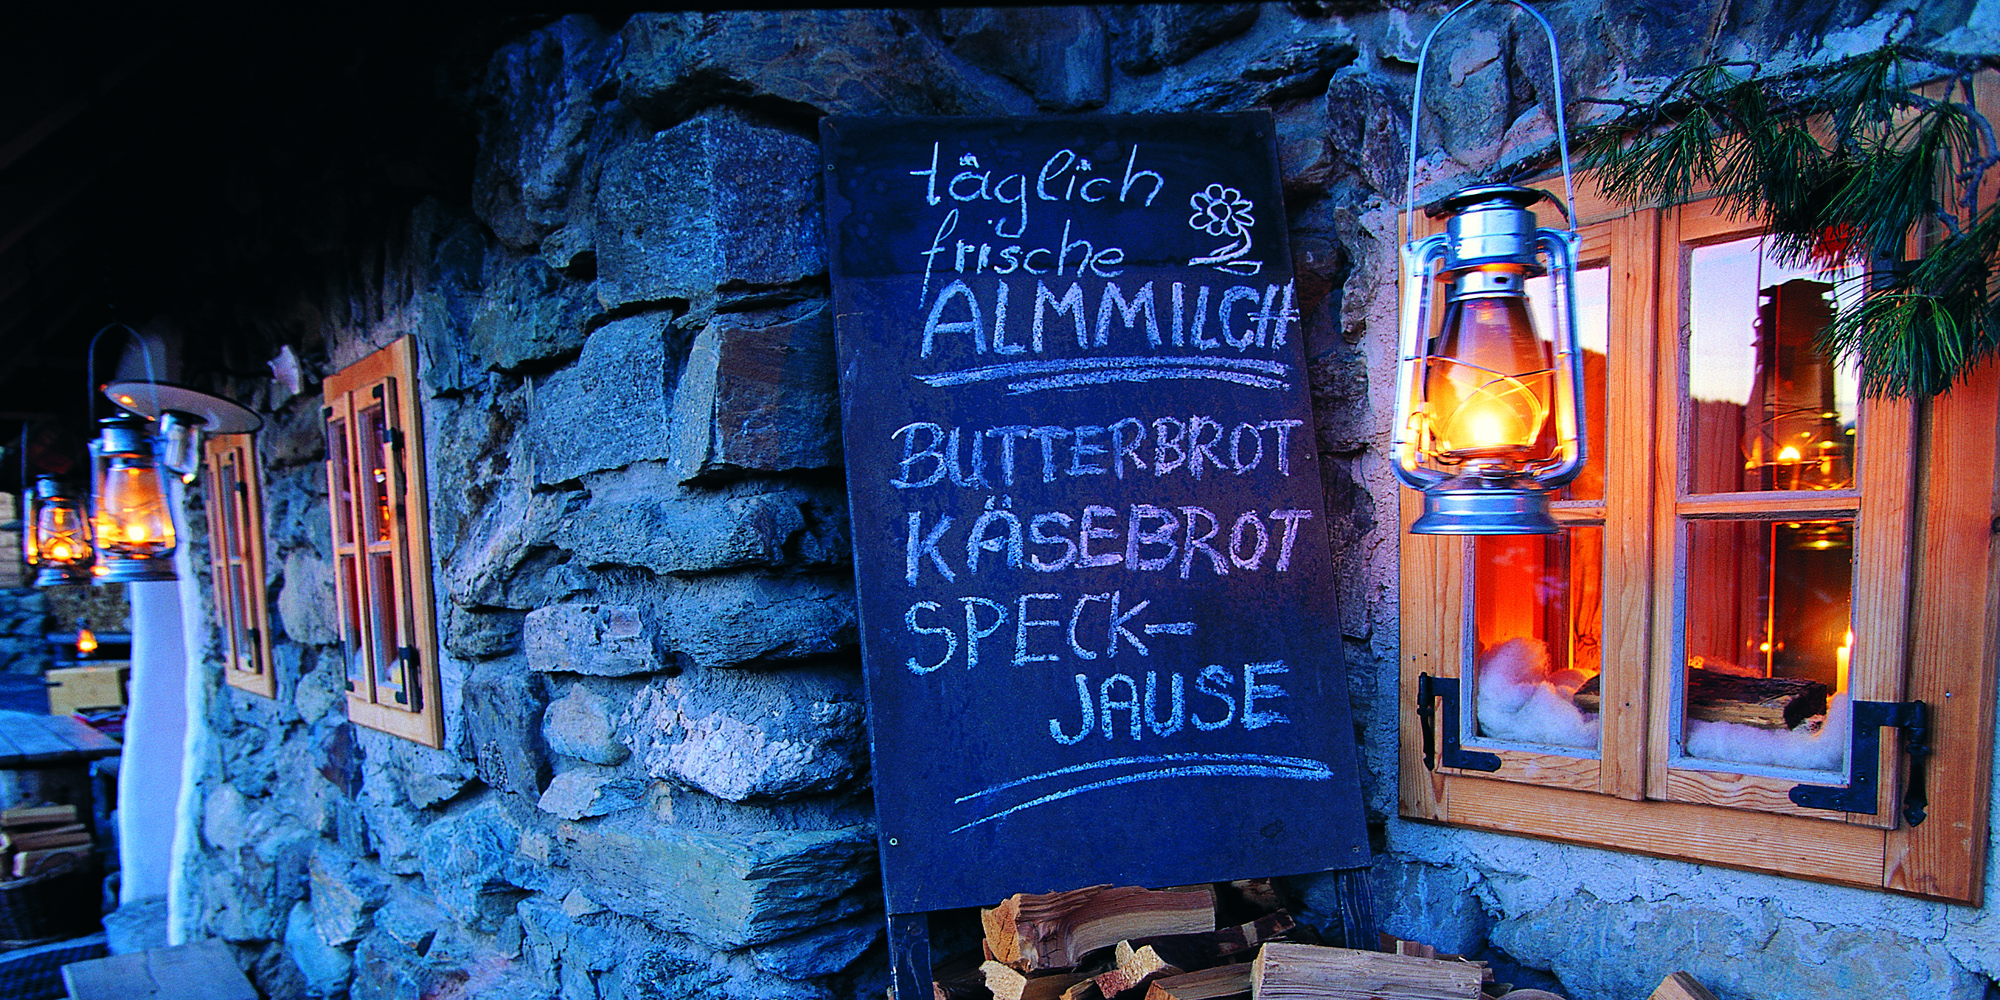 täglich
frische
ALMMILCH
BUTTERBROT
KÄSEBROT
SPECK-
JAUSE